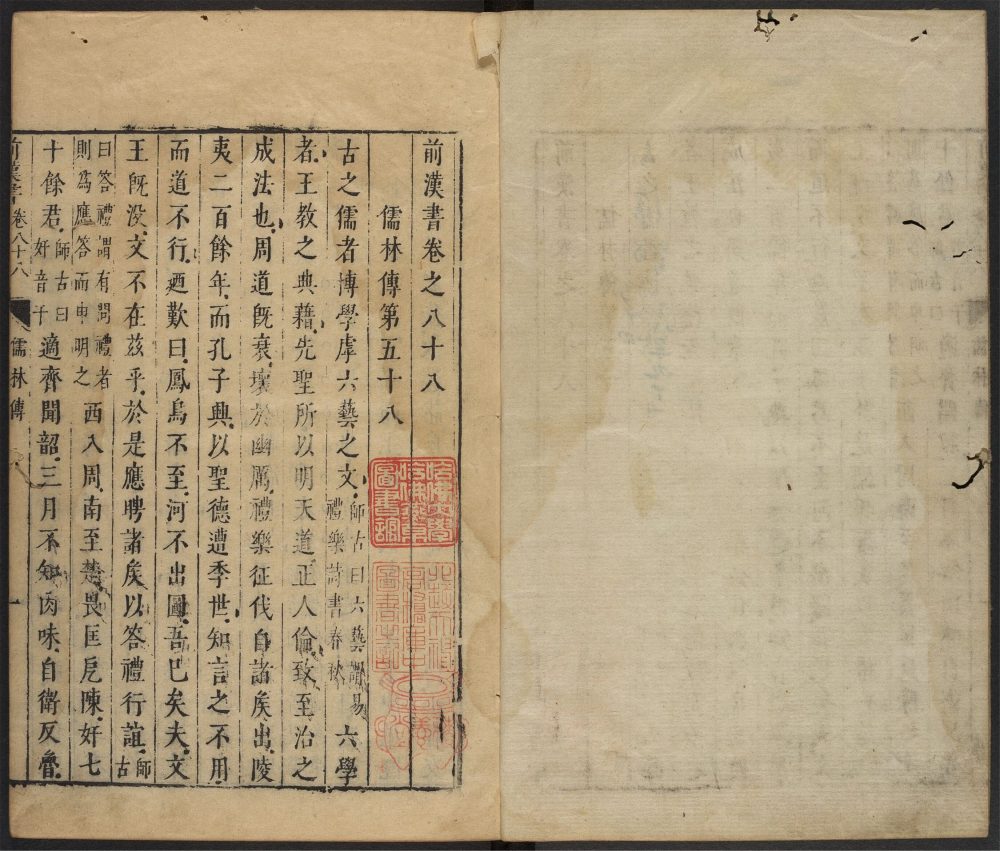 前漢書卷之八十八
儒林傳第五十八
古之儒者博學虖六藝之文師古曰六藝謂易禮樂詩書春秋六學
者王教之典藉先聖所以明天道正人倫致至治之
成法也周道旣衰壞於幽厲禮樂征伐自諸矦出陵
夷二百餘年而孔子興以聖德遭季世知言之不用
而道不行廼歎曰鳳鳥不至河不出圖吾已矣夫文
王旣没文不在茲乎於是應聘諸矦以答禮行誼師古
曰答禮謂有問禮者則爲應答而申明之西入周南至楚畏匡戹陳奸七
十餘君師古曰奸音干適齊聞韶三月不知肉味自衛反魯
前漢書卷八十八 儒林傳 一
哈佛大學哈佛燕京圖書館